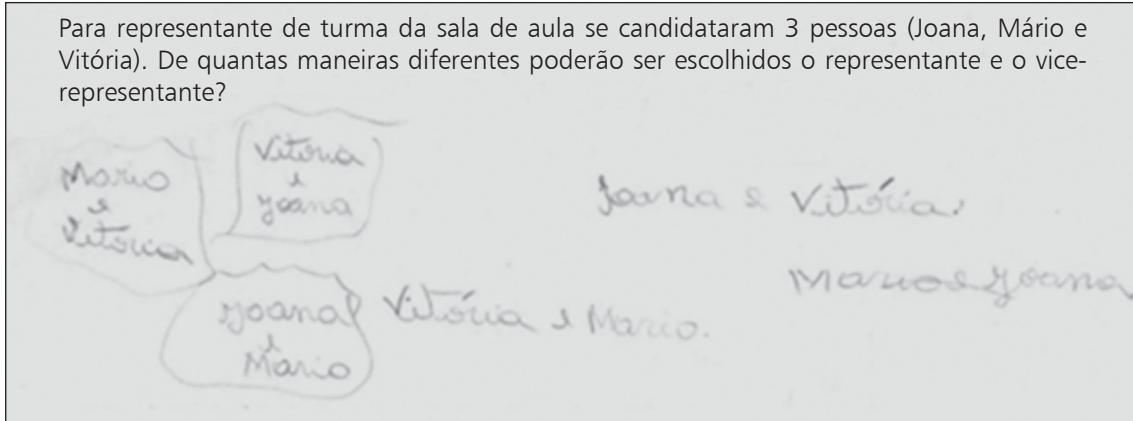 Para representante de turma da sala de aula se candidataram 3 pessoas (Joana, Mário e
Vitória). De quantas maneiras diferentes poderão ser escolhidos o representante e o vice-
representante?
Mario
e
Vitória
Vitória
e
Joana
Joana
e
Mario
Vitória e Mario.
Joana e Vitória.
Mario e Joana